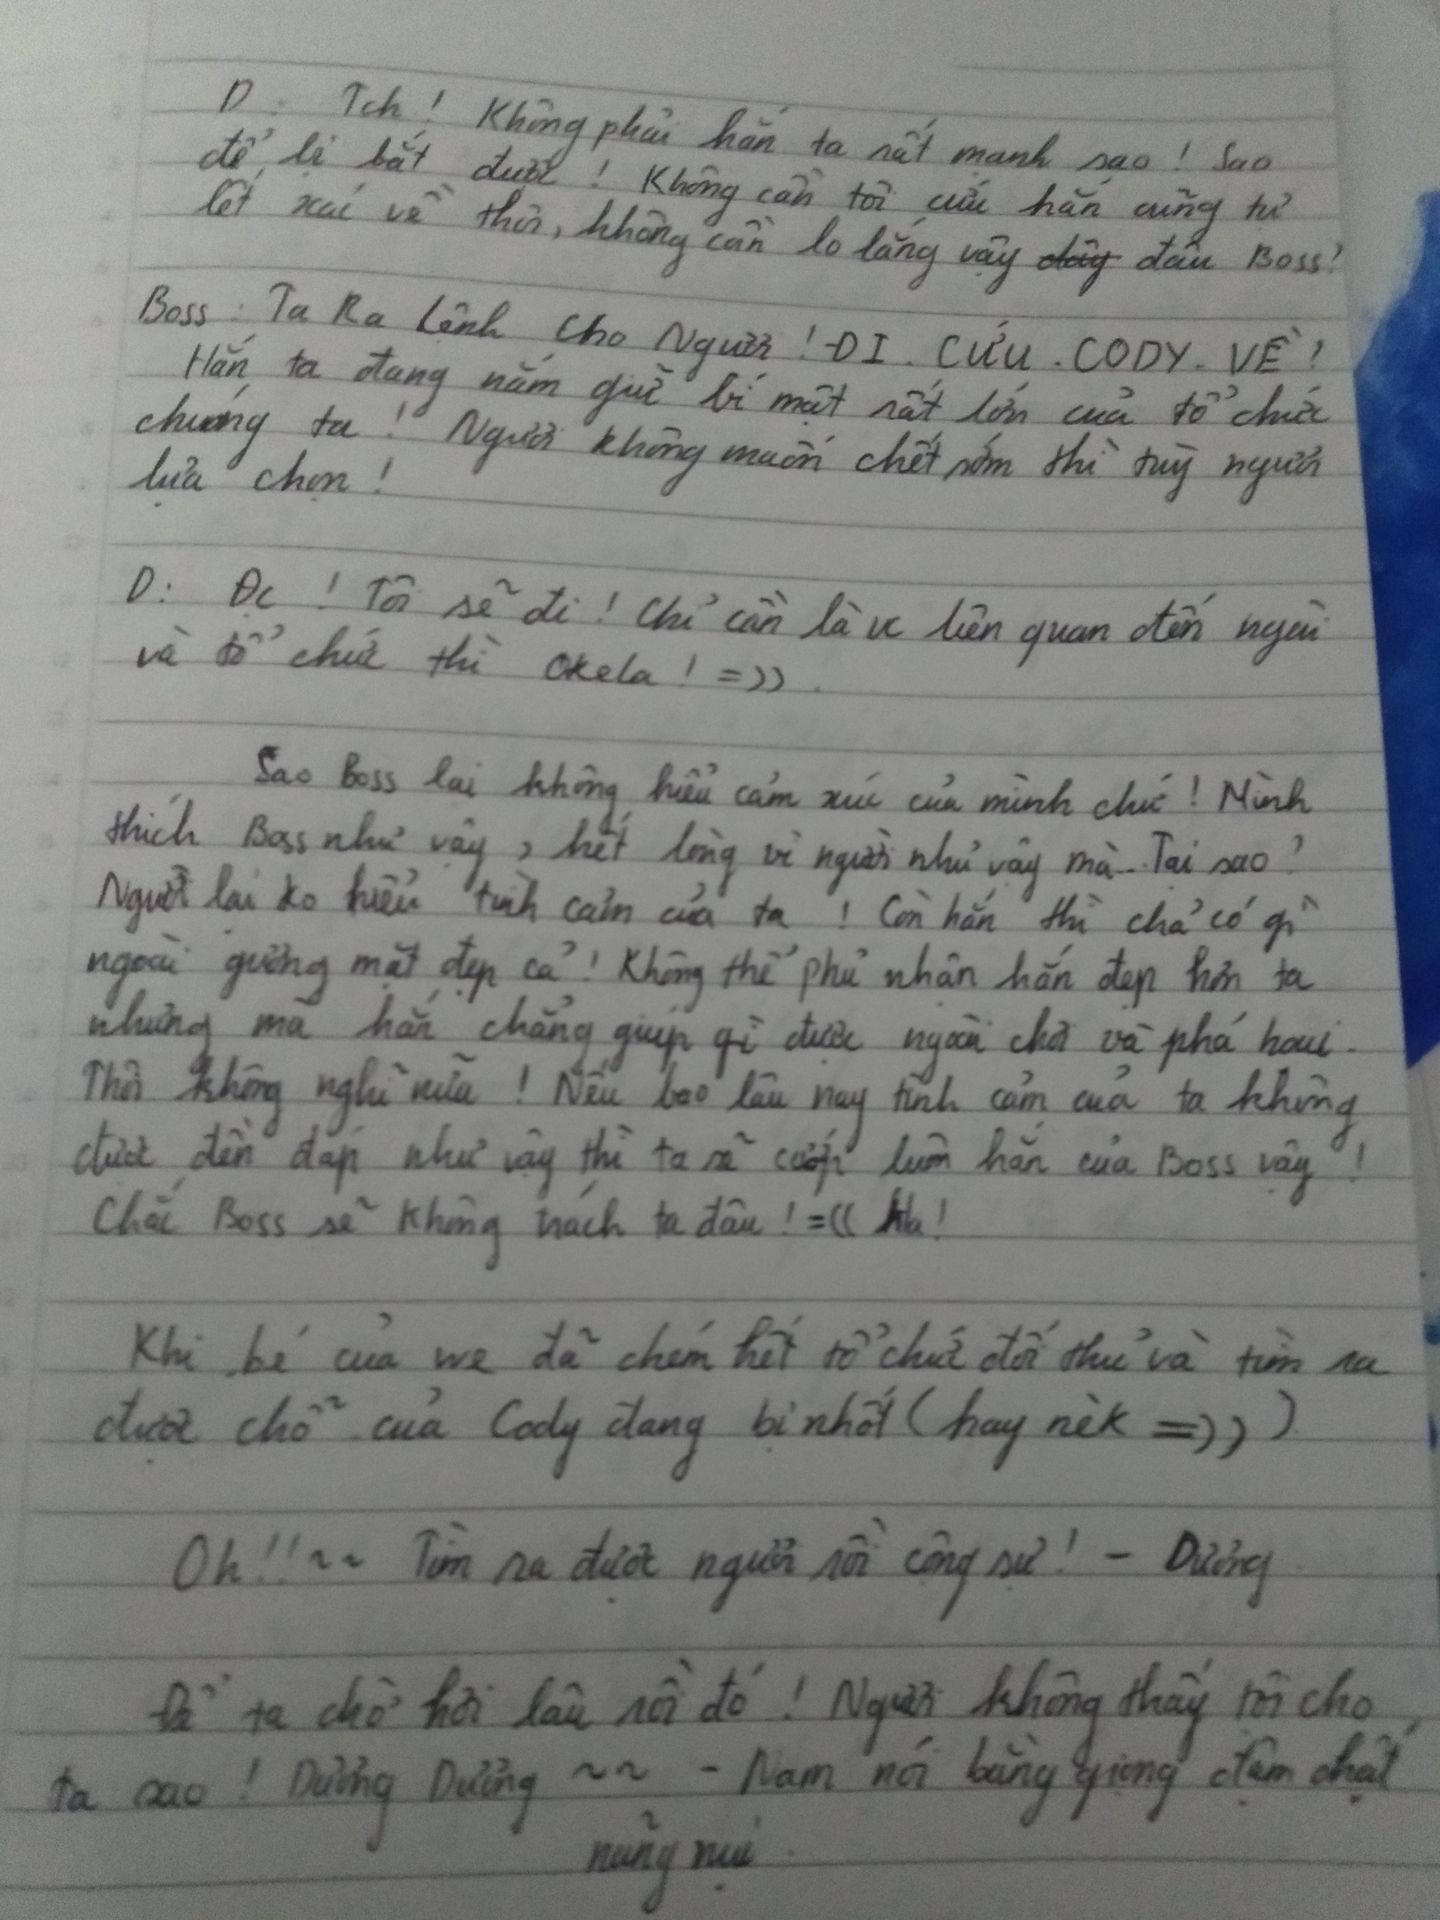 D: Tch! Không phải hắn ta rất mạnh sao! Sao
để bị bắt được! Không cần tôi cứu hắn cũng tự
lết xác về thôi, không cần lo lắng vậy đâu Boss!
Boss: Ta Ra Lệnh Cho Ngươi! ĐI. CỨU. CODY. VỀ!
Hắn ta đang nắm giữ bí mật rất lớn của tổ chức
chúng ta! Ngươi không muốn chết sớm thì tuỳ ngươi
lựa chọn!
D: Đc! Tôi sẽ đi! Chỉ cần là vc liên quan đến ngài
và tổ chức thì Okela! =)).
Sao Boss lại không hiểu cảm xúc của mình chứ! Mình
thích Boss như vậy, hết lòng vì người như vậy mà.. Tại sao?
Người lại ko hiểu tình cảm của ta! Còn hắn thì chả có gì
ngoài gương mặt đẹp cả! Không thể phủ nhận hắn đẹp hơn ta
nhưng mà hắn chẳng giúp gì được ngoài chơi và phá hoại.
Thôi không nghĩ nữa! Nếu bao lâu nay tình cảm của ta không
được đền đáp như vậy thì ta sẽ cướp luôn hắn của Boss vậy!
Chắc Boss sẽ không trách ta đâu! =(( Ha!
Khi bé của we đã chém hết tổ chức đối thủ và tìm ra
được chỗ của Cody đang bị nhốt (hay nèk =)))
Oh!!~~ Tìm ra được ngươi rồi cộng sự! - Dương
Để ta chờ hơi lâu rồi đó! Ngươi không thấy tội cho
ta sao! Dương Dương ~~ - Nam nói bằng giọng đậm chất
nũng nịu.